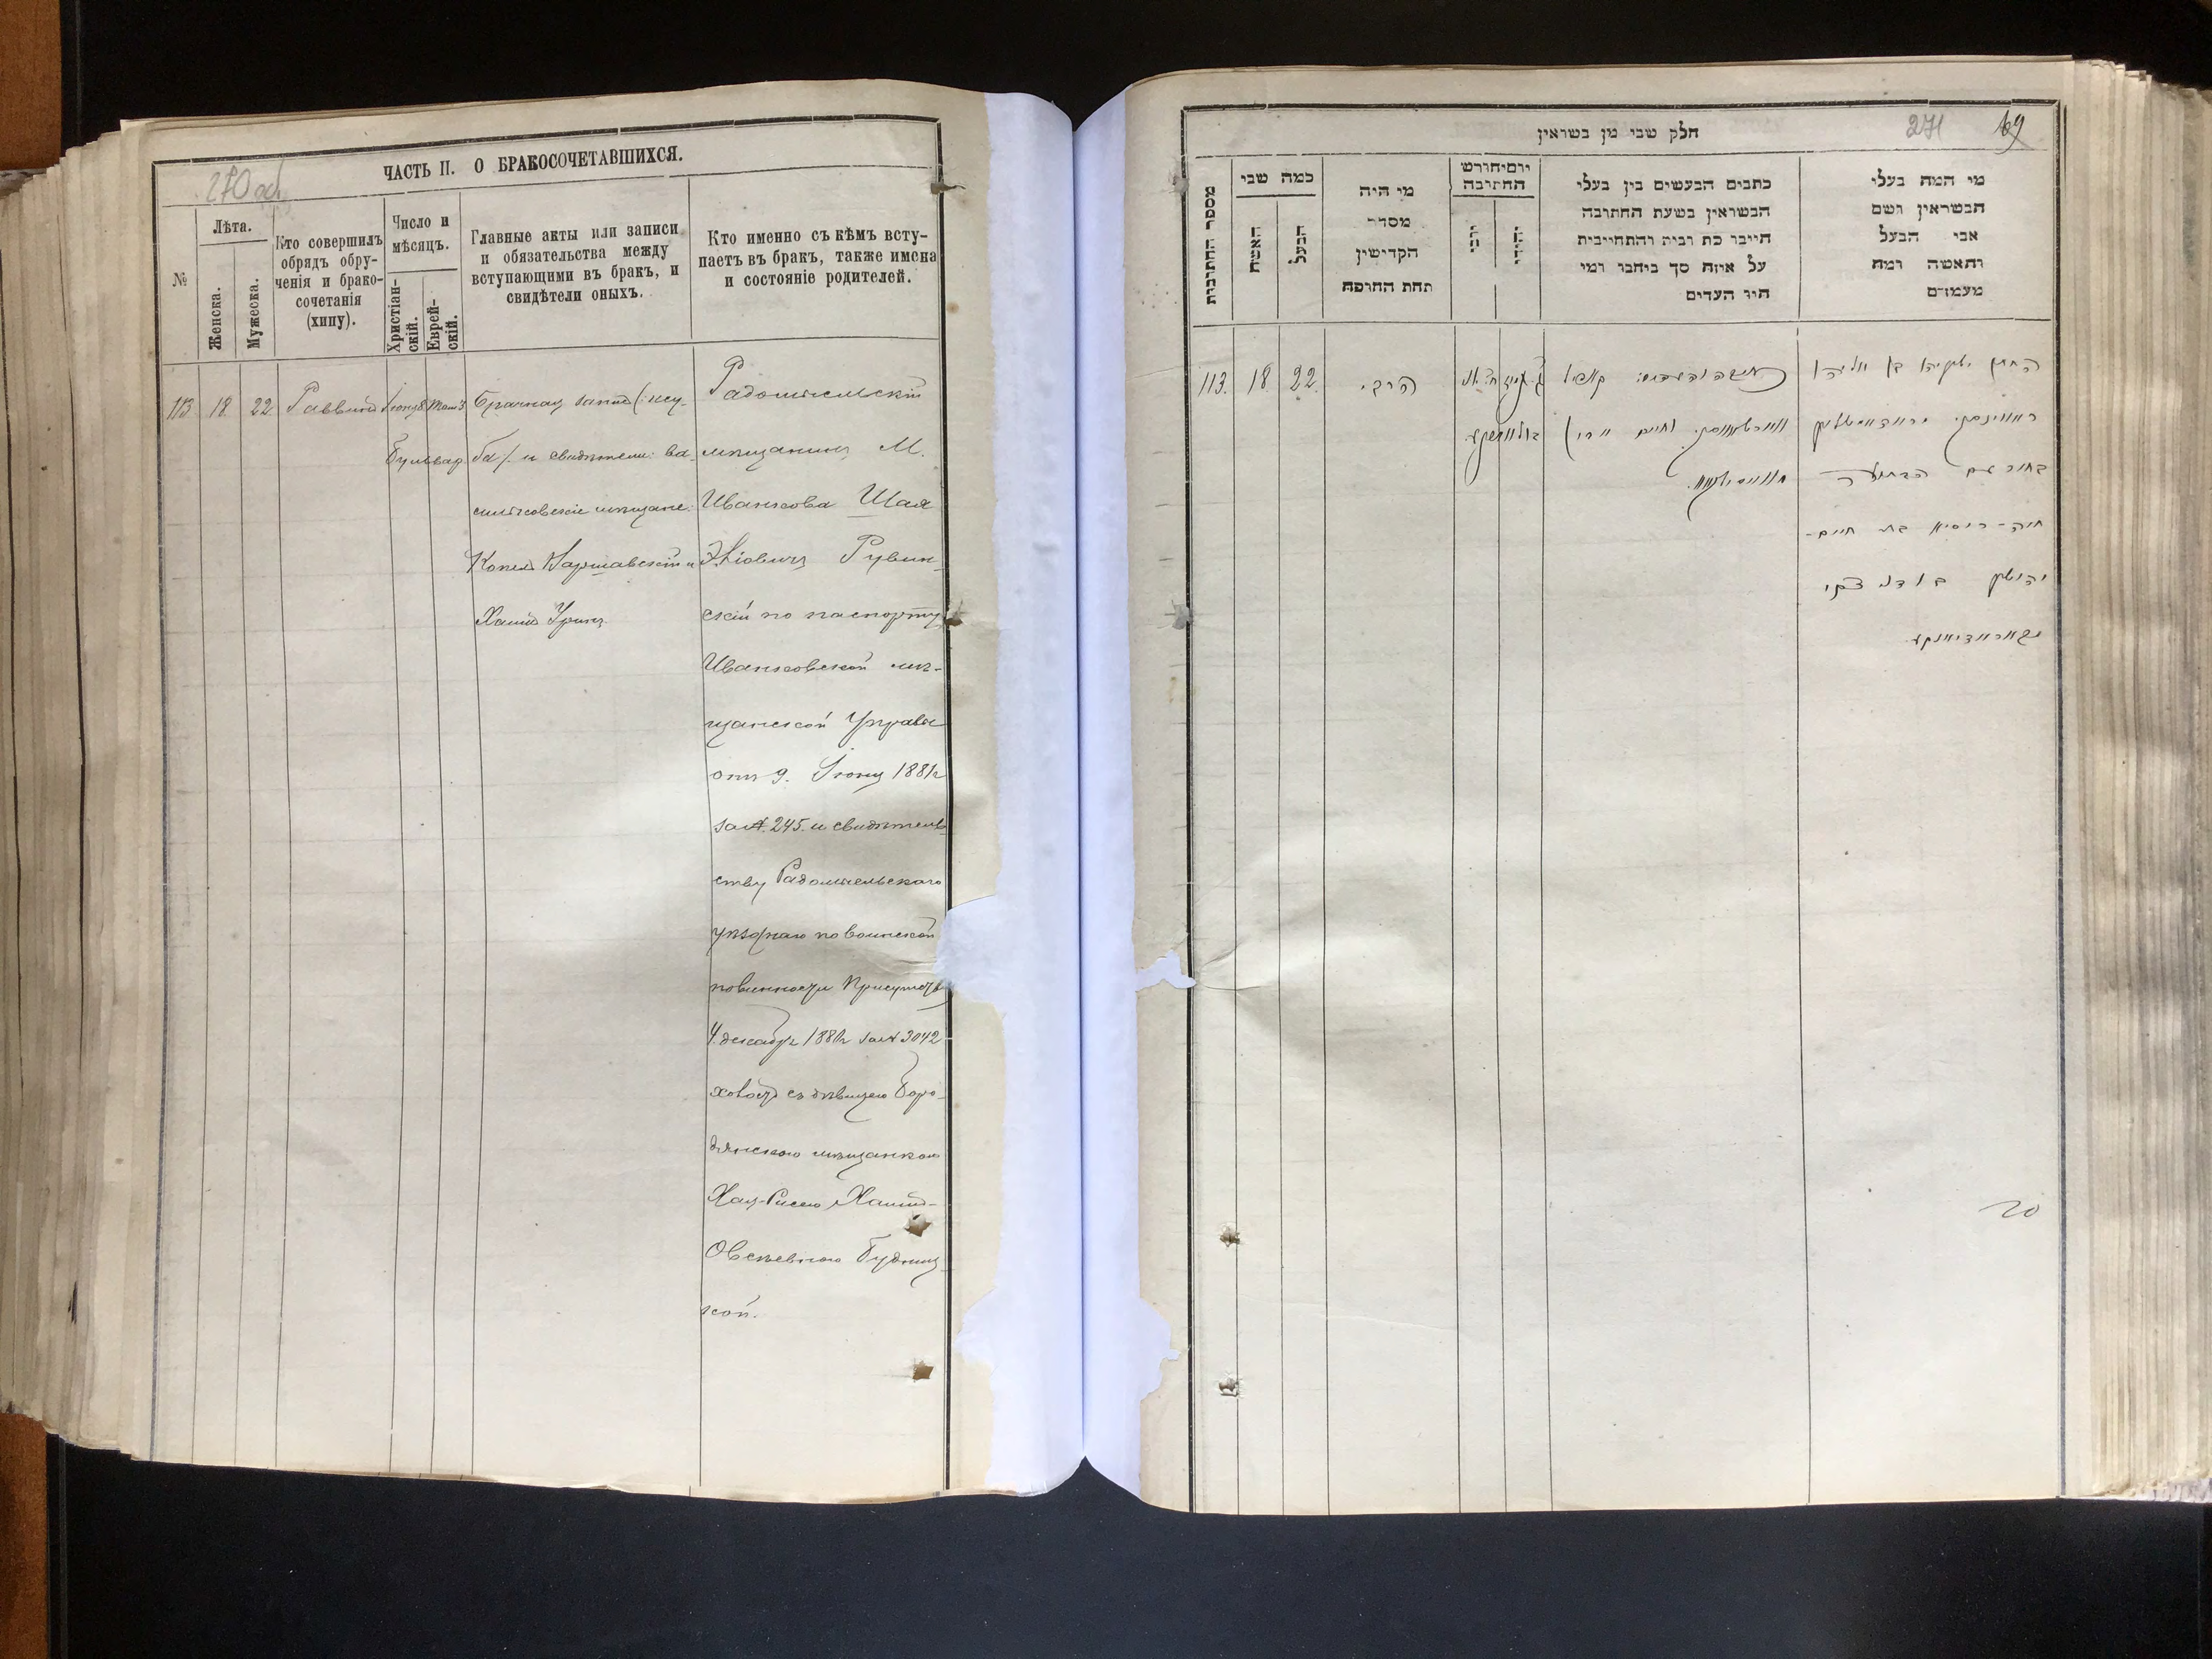 270 об
ЧАСТЬ II. О БРАКОСОЧЕТАВШИХСЯ.
№
Лѣта.
Женска.
Мужеска.
Кто совершилъ
обрядъ обру-
ченія и брако-
сочетанія
(хипу).
Число и
мѣсяцъ.
Христіан-
скій.
Еврей-
скій.
Главные акты или записи
и обязательства между
вступающими въ бракъ, и
свидѣтели оныхъ.
Кто именно съ кѣмъ всту-
паетъ въ бракъ, также имена
и состояніе родителей.
113 18. 22 Раввинъ Іюня 8
Бульвар
Брачная запись (: ксу-
ба /. и свидѣтели: Ва-
сильковскіе мѣщане:
Копель Варшавскій и
Хаимъ Уринъ
Радомысльскій
мѣщанинъ М.
Иванкова Шая
Эліовичъ Рувин-
скій по паспорту
Иванковской мѣ-
щанской Управы
отъ 9. Іюня 1881г
за № 245. и свидѣтель-
ству Радомысльскаго
уѣзднаго по воинской
повинности Присутств
4. декабря 1881г за № 3042
холостъ съ дѣвицею Боро-
дянскою мѣщанкою
Хая-Рисею Хаимъ-
Овсѣевною Будниц-
кой.
271 69
חלק שבי מן בשראין
מספר החתובית
כמה שבי
האשה
הבעל
מי היה
מסדר
הקדישין
תחת החופה
יום יחורש
החתיבה
כתבים הבעשים בין בעלי
הבשראין בשעת החתובה
הייבו כת ובית והתחייבית
על איזה סך ביחבו ומי
היו העדים
מי המה בעלי
הבשראין ושם
אבי הבעל
והאשה ומה
מעמדם
113. 18. 22. הרבי
החתן ישעיהו בן אליהו
ראווינסקי
בחור עם הבתולה
חיה-ריסיא בת חיים-
יהושע בודניצקי
20